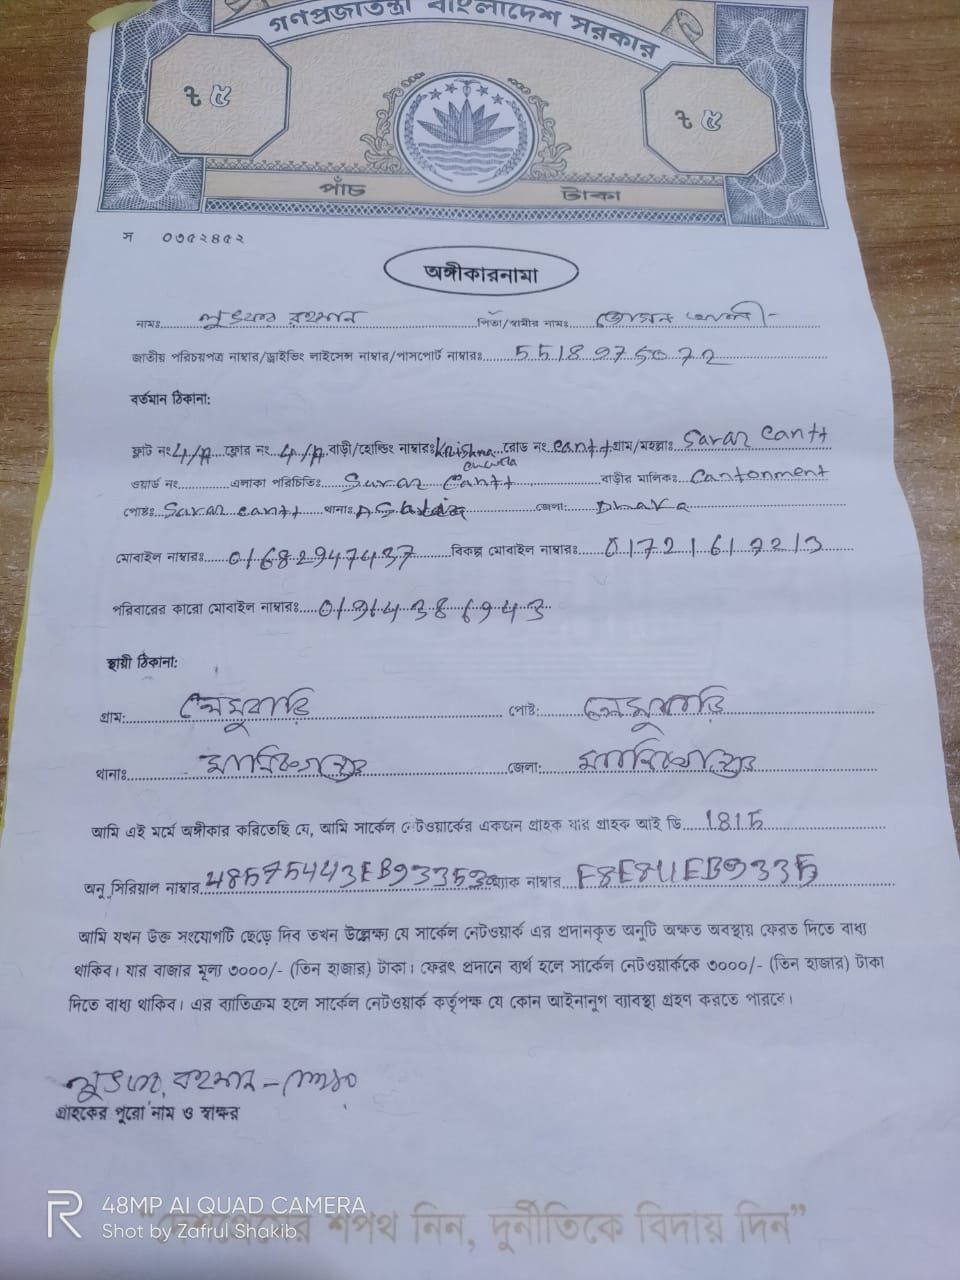 গণপ্রজাতন্ত্রী বাংলাদেশ সরকার
৳ ৫ ৳ ৫
পাঁচ টাকা
স ০৩৫২৪৫২
অঙ্গীকারনামা
নামঃ লুৎফর রহমান পিতা/স্বামীর নামঃ
জাতীয় পরিচয়পত্র নাম্বার/ড্রাইভিং লাইসেন্স নাম্বার/পাসপোর্ট নাম্বারঃ 5518975072
বর্তমান ঠিকানা:
ফ্লাট নং 4/A ফ্লোর নং 4/A বাড়ী/হোল্ডিং নাম্বারঃ Krishna রোড নং cantt গ্রাম/মহল্লাঃ Savar Cantt
chura
ওয়ার্ড নং এলাকা পরিচিতিঃ Savar Cantt বাড়ীর মালিকঃ Cantonment
পোষ্টঃ Savar cantt থানাঃ জেলা: Dhaka
মোবাইল নাম্বারঃ 01682947437 বিকল্প মোবাইল নাম্বারঃ
পরিবারের কারো মোবাইল নাম্বারঃ
স্থায়ী ঠিকানা:
গ্রাম: লেমুবাড়ি পোষ্ট: লেমুবাড়ি
থানাঃ মানিকগঞ্জ জেলা: মানিকগঞ্জ
আমি এই মর্মে অঙ্গীকার করিতেছি যে, আমি সার্কেল নেটওয়ার্কের একজন গ্রাহক যার গ্রাহক আই ডি 1815
অনু সিরিয়াল নাম্বার ম্যাক নাম্বার F8E811EB9335
আমি যখন উক্ত সংযোগটি ছেড়ে দিব তখন উল্লেক্ষ্য যে সার্কেল নেটওয়ার্ক এর প্রদানকৃত অনুটি অক্ষত অবস্থায় ফেরত দিতে বাধ্য
থাকিব। যার বাজার মূল্য ৩০০০/- (তিন হাজার) টাকা। ফেরৎ প্রদানে ব্যর্থ হলে সার্কেল নেটওয়ার্ককে ৩০০০/- (তিন হাজার) টাকা
দিতে বাধ্য থাকিব। এর ব্যাতিক্রম হলে সার্কেল নেটওয়ার্ক কর্তৃপক্ষ যে কোন আইনানুগ ব্যাবস্থা গ্রহণ করতে পারবে।
লুৎফর রহমান
গ্রাহকের পুরো নাম ও স্বাক্ষর
48MP AI QUAD CAMERA
Shot by Zafrul Shakib
শপথ নিন, দুর্নীতিকে বিদায় দিন”